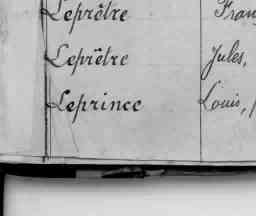 Leprêtre Fran
Leprêtre Jules,
Leprince Louis,